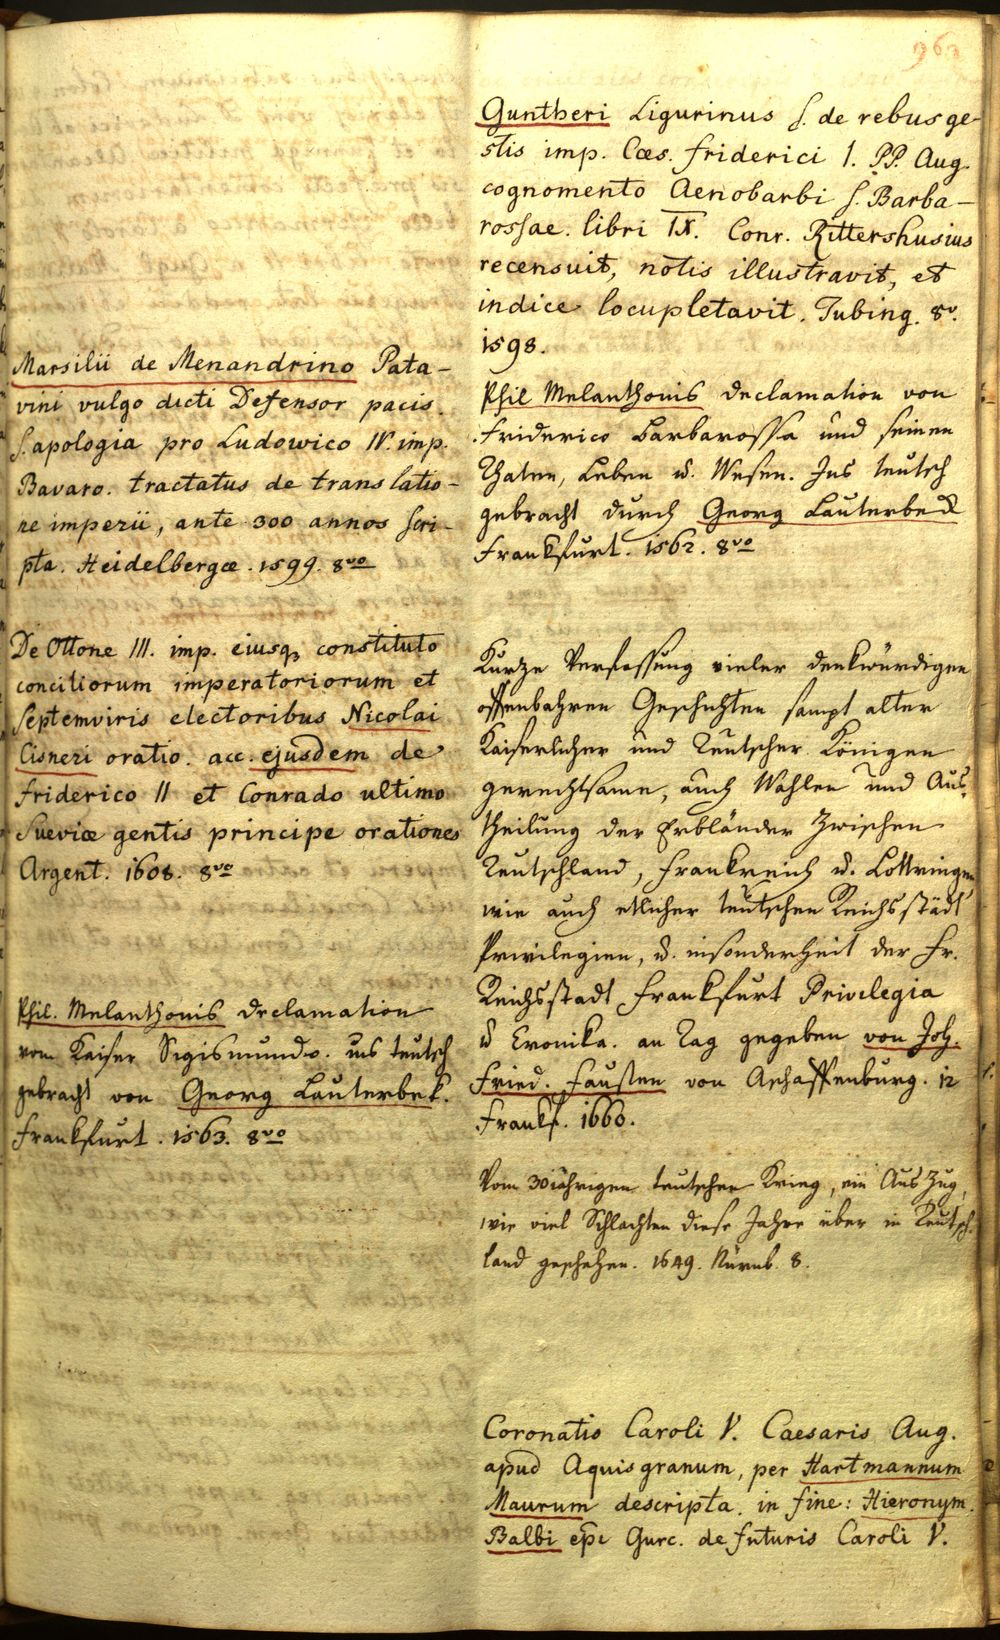 963
Marsilii de Menandrino Pata-
vini vulgo dicti Defensor pacis.
s. apologia pro Ludowico IV. imp.
Bavaro. tractatus de translatio-
ne imperii, ante 300 annos scri-
pta. Heidelbergæ. 1599. 8vo
De Ottone III. imp. eiusq3 constituto
conciliorum imperatoriorum et
septemviris electoribus Nicolai
Cisneri oratio. acc. ejusdem de
friderico II et Conrado ultimo
Sueviæ gentis principe orationes
Argent. 1608. 8vo
Phil. Melanthonis declamation
vom Kaiser Sigismundo. ins teutsch
gebracht von Georg Lauterbek.
Frankfurt. 1563. 8vo
Guntheri Ligurinus s. de rebus ge-
stis imp. Cæs. friderici I. P.P. Aug
cognomento Aenobarbi s. Barba-
rossae. libri IX. Conr. Rittershusius
recensuit, notis illustravit, et
indice locupletavit. Tubing. 8v.
1598.
Phil Melanthonis declamation von
Friderico Barbarossa und seinen
Thaten, Leben u. Wesen. Ins teutsch
gebracht durch Georg Lauterbeck
Frankfurt. 1562. 8vo
Kurze Verfassung vieler denkwürdigen
offenbahren Geschichten sampt alter
Kaiserlicher und Teutscher Königen
gerechtsame, auch Wahlen und Aus-
theilung der Erbländer zwischen
Teutschland, Frankreich u. Lottringen
wie auch etlicher teutschen Reichsstädt
Privilegien, u. insonderheit der Fr.
Reichsstadt Frankfurt Privilegia
u Cronika. an Tag gegeben von Joh.
Fried. Fausten von Aschaffenburg. 12
Frankf. 1660.
Vom 30jährigen teutschen Krieg, ein Auszug,
wie viel Schlachten diese Jahre über in Teutsch-
land geschehen. 1649. Nürnb. 8.
Coronatio Caroli V. Caesaris Aug.
apud Aquisgranum, per Hartmannum
Maurum descripta. in fine: Hieronym.
Balbi epi Gurc. de futuris Caroli V.